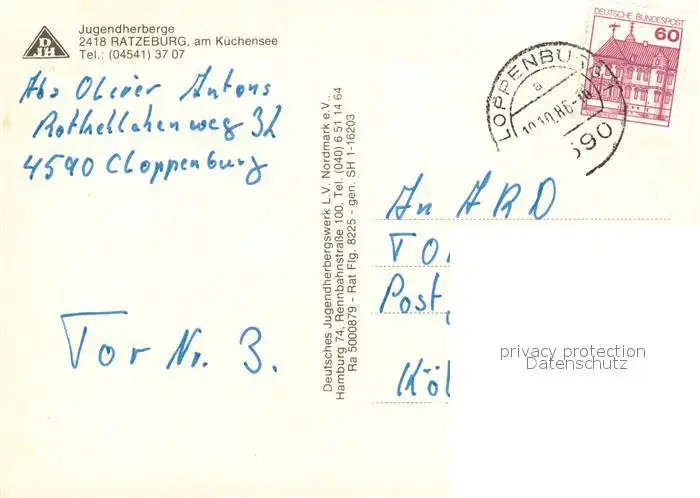 DJH
Jugendherberge
2418 RATZEBURG, am Küchensee
Tel.: (04541) 37 07
Abs Olivier Antons
Rothellahen weg 32
4590 Cloppenburg
Tor Nr. 3.
Deutsches Jugendherbergswerk L.V. Nordmark e.V.,
Hamburg 74, Rennbahnstraße 100, Tel. (040) 6 51 14 64
Ra 5000879 - Rat Flg. 8225 - gen. SH 1-16203
DEUTSCHE BUNDESPOST
60
LOPPENBU
a
10.10.86
590
An ARD
TO
Post
Köl
privacy protection
Datenschutz